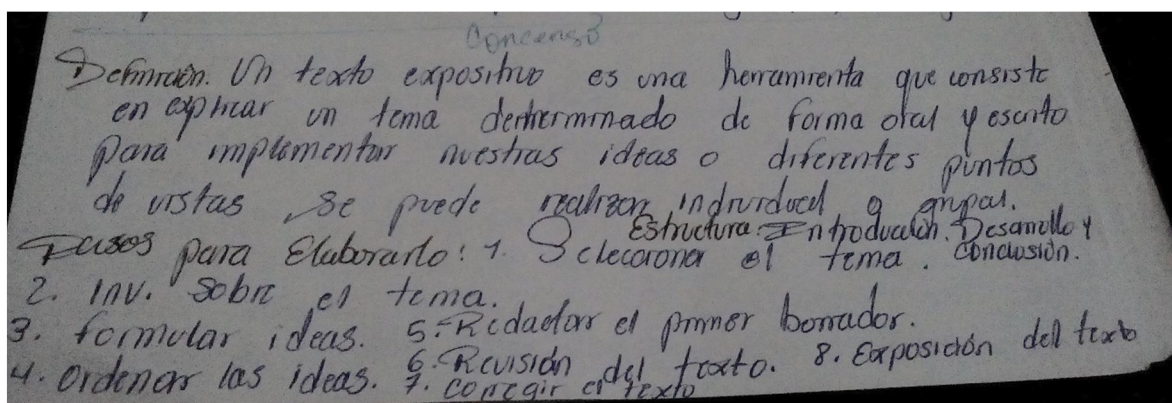 Concenso
Definición. Un texto expositivo es una herramienta que consiste
en explicar un tema detherminado de forma oral y escrito
para implementar nuestras ideas o diferentes puntos
de vistas, se puede realizar individual o grupal.
Estructura: Introducción. Desarrollo y
conclusión.
Pasos para Elaborarlo: 1. Seleccionar el tema.
2. Inv. Sobre el tema.
3. formular ideas. 5. Redactar el primer borrador.
4. Ordenar las ideas. 6. Revisión del texto. 8. Exposición del texto
7. corregir el texto